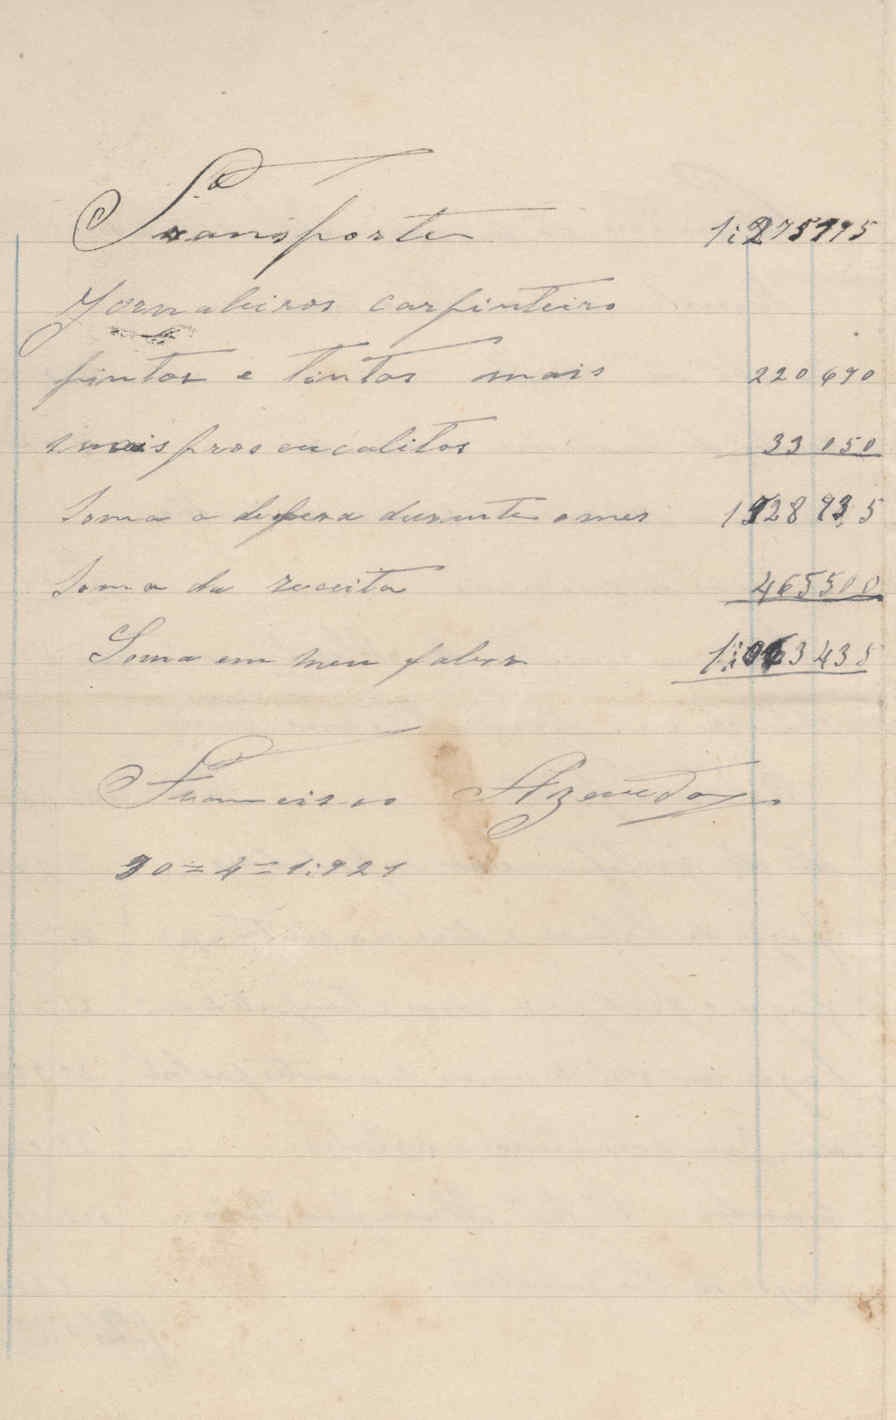 Transporte 1:275195
Jornaleiros carpinteiro
pintor e tintas mais 220690
mais pros eucalitos 33050
Soma a despesa durante o mes 1528935
Soma da receita 465500
Soma em meu fabor 1:063435
Francisco Azevedo
30=4=1:921